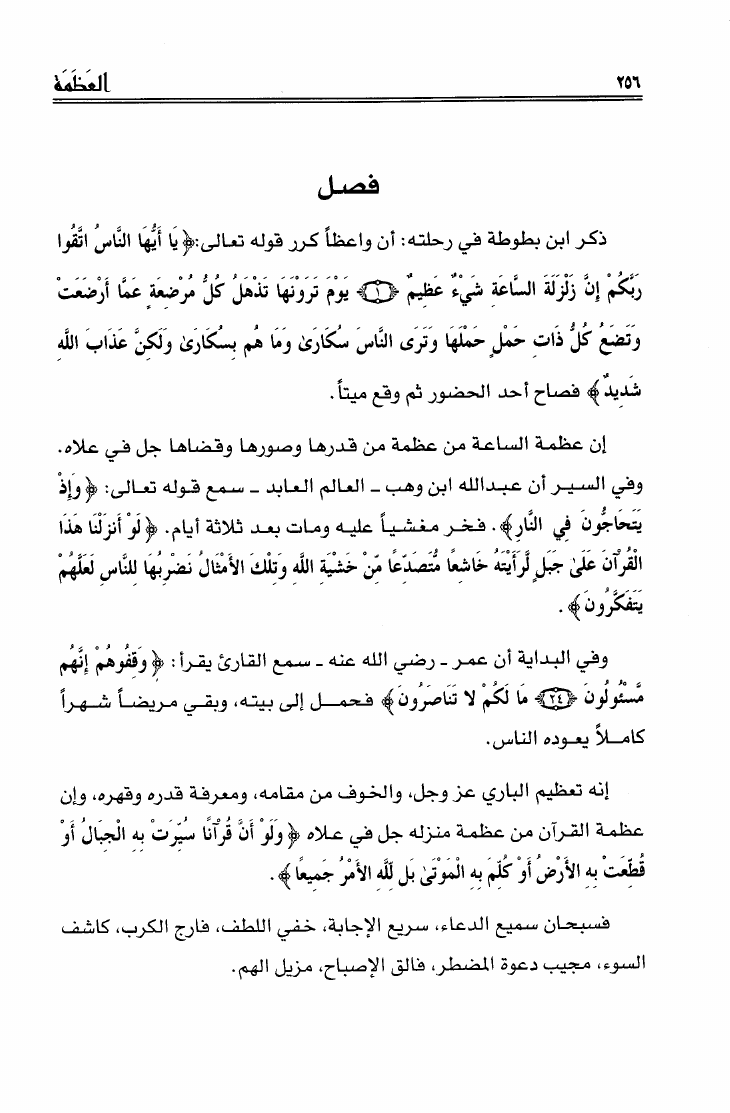 ٢٥٦
العَظَمَة
فصل
ذكر ابن بطوطة في رحلته: أن واعظاً كرر قوله تعالى:﴿ يَا أَيُّهَا النَّاسُ اتَّقُوا
رَبَّكُمْ إِنَّ زَلْزَلَةَ السَّاعَةِ شَيْءٌ عَظِيمٌ ﴿١﴾ يَوْمَ تَرَوْنَهَا تَذْهَلُ كُلُّ مُرْضِعَةٍ عَمَّا أَرْضَعَتْ
وَتَضَعُ كُلُّ ذَاتِ حَمْلٍ حَمْلَهَا وَتَرَى النَّاسَ سُكَارَىٰ وَمَا هُم بِسُكَارَىٰ وَلَكِنَّ عَذَابَ اللَّهِ
شَدِيدٌ﴾ فصاح أحد الحضور ثم وقع ميتاً.
إن عظمة الساعة من عظمة من قدرها وصورها وقضاها جل في علاه.
وفي السير أن عبدالله ابن وهب ـ العالم العابد ـ سمع قوله تعالى: ﴿ وَإِذْ
يَتَحَاجُّونَ فِي النَّارِ﴾. فخر مغشياً عليه ومات بعد ثلاثة أيام. ﴿ لَوْ أَنزَلْنَا هَذَا
الْقُرْآنَ عَلَىٰ جَبَلٍ لَّرَأَيْتَهُ خَاشِعًا مُّتَصَدِّعًا مِّنْ خَشْيَةِ اللَّهِ وَتِلْكَ الأَمْثَالُ نَضْرِبُهَا لِلنَّاسِ لَعَلَّهُمْ
يَتَفَكَّرُونَ﴾ .
وفي البداية أن عمر ـ رضي الله عنه ـ سمع القارئ يقرأ: ﴿ وَقِفُوهُمْ إِنَّهُم
مَّسْئُولُونَ ﴿٢٤﴾ مَا لَكُمْ لا تَنَاصَرُونَ﴾ فحمل إلى بيته، وبقي مريضاً شهراً
كاملاً يعوده الناس.
إنه تعظيم الباري عز وجل، والخوف من مقامه، ومعرفة قدره وقهره، وإن
عظمة القرآن من عظمة منزله جل في علاه ﴿ وَلَوْ أَنَّ قُرْآنًا سُيِّرَتْ بِهِ الْجِبَالُ أَوْ
قُطِّعَتْ بِهِ الأَرْضُ أَوْ كُلِّمَ بِهِ الْمَوْتَىٰ بَل لِّلَّهِ الأَمْرُ جَمِيعًا﴾ .
فسبحان سميع الدعاء، سريع الإجابة، خفي اللطف، فارج الكرب، كاشف
السوء، مجيب دعوة المضطر، فالق الإصباح، مزيل الهم.